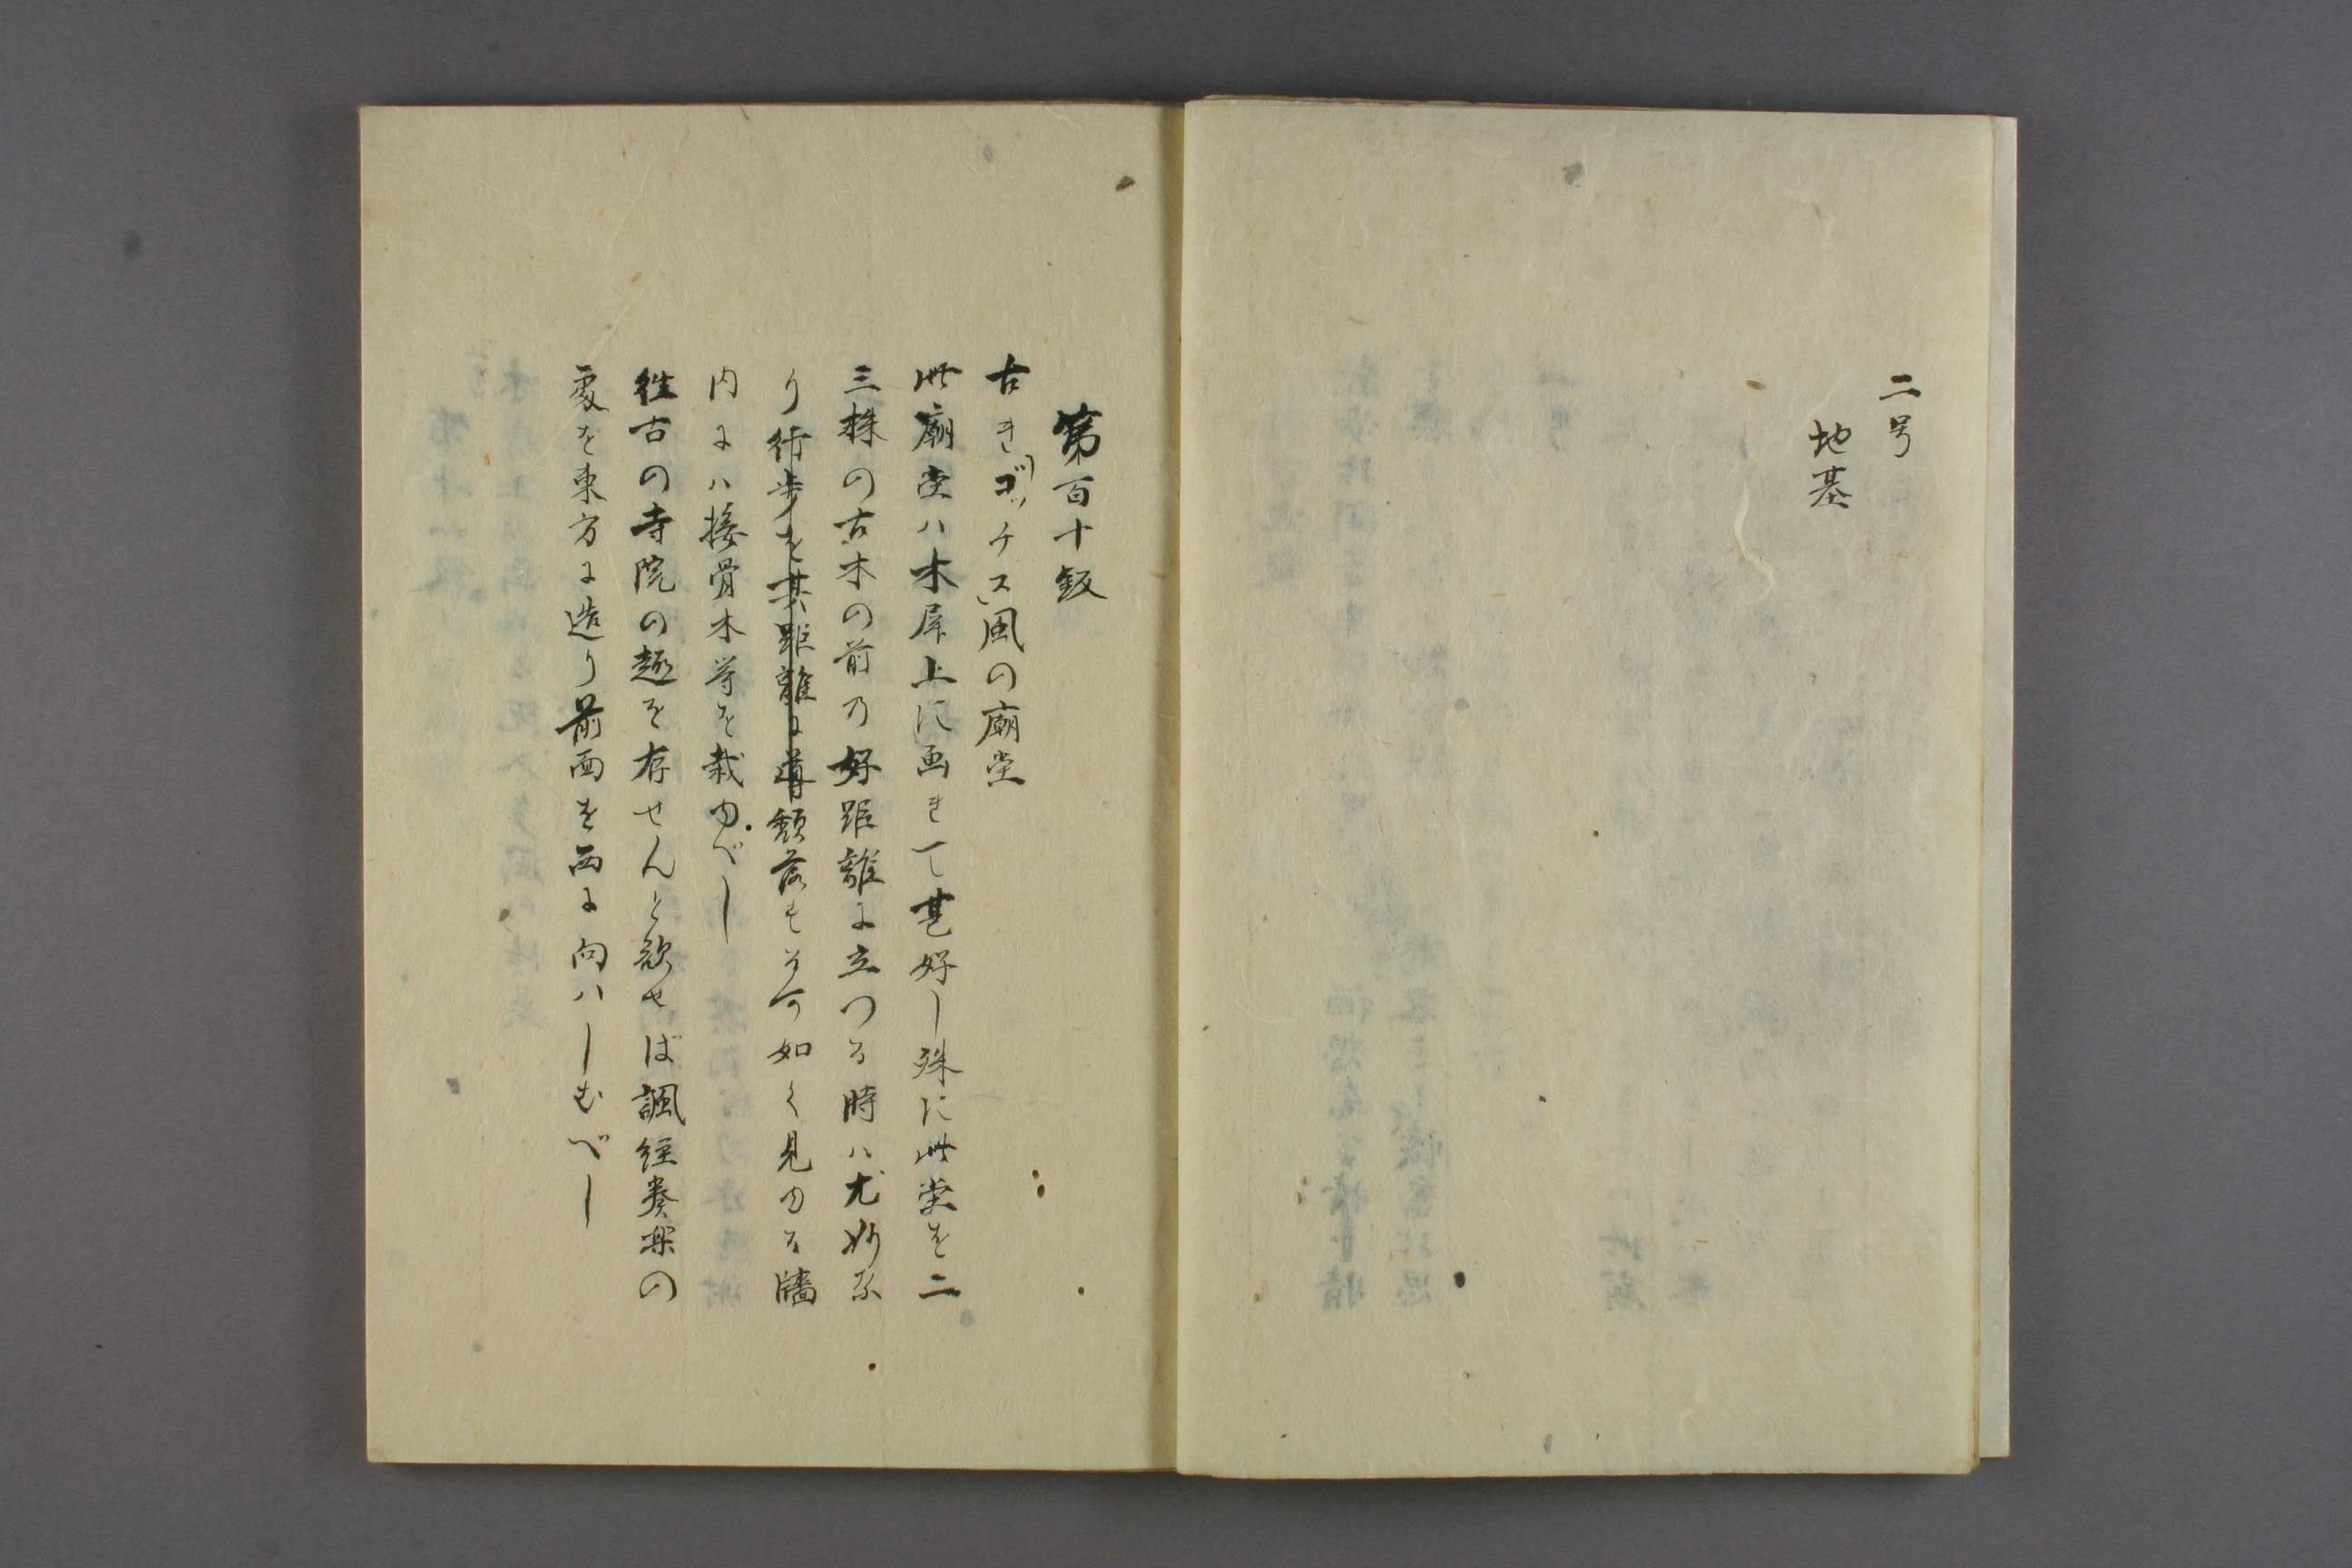 二号
地基
第百十鈑
古き「ゴッチス」風の廟堂
此廟堂ハ木屏上に画きて甚好し殊に此堂を二
三株の古木の前乃好距離に立つる時ハ尤妙な
り術歩を其距離に導頽落もるが如く見ゆる牆
内にハ接骨木等を栽ゆべし
往古の寺院の趣を存せんと欲せば諷経奏楽の
処を東方に造り前面を西に向ハしむべし